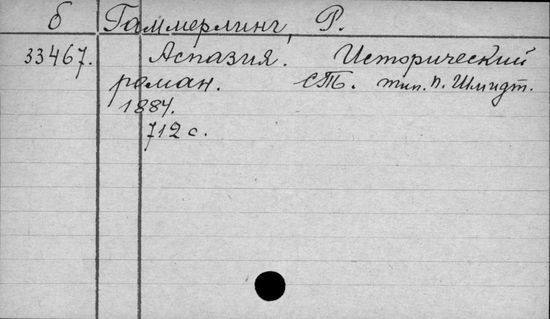 б Гаммерлинг, Р.
33467. Аспазия. Исторический
роман. СПб. тип. П. Шмидт.
1884.
712 с.